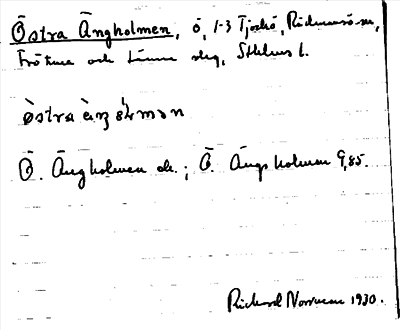 Östra Ängholmen, ö, 1-3 Tjockö, Rådmansö sn,
Frötuna och Länna slag, Sthlms l.
òstra æ̀ŋ ɷ̀lmən
Ö. Ängholmen ek.; Ö. Ängsholmen G,85.
Rickard Norrman 1930.